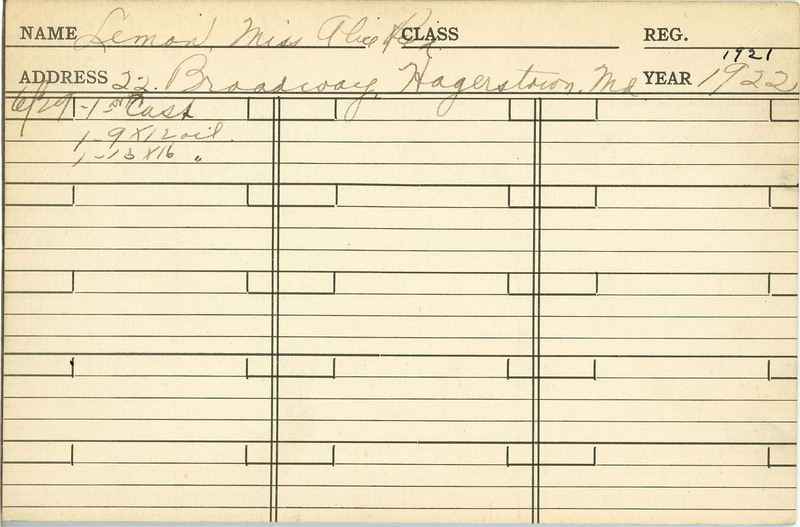 NAME Lemon, Miss Alice CLASS REG.
1921
ADDRESS 22. Broadway, Hagerstown. Md YEAR 1922
6/29 - 1st Cast
1 - 9 x 12 oil.
1 - 13 x 16 "